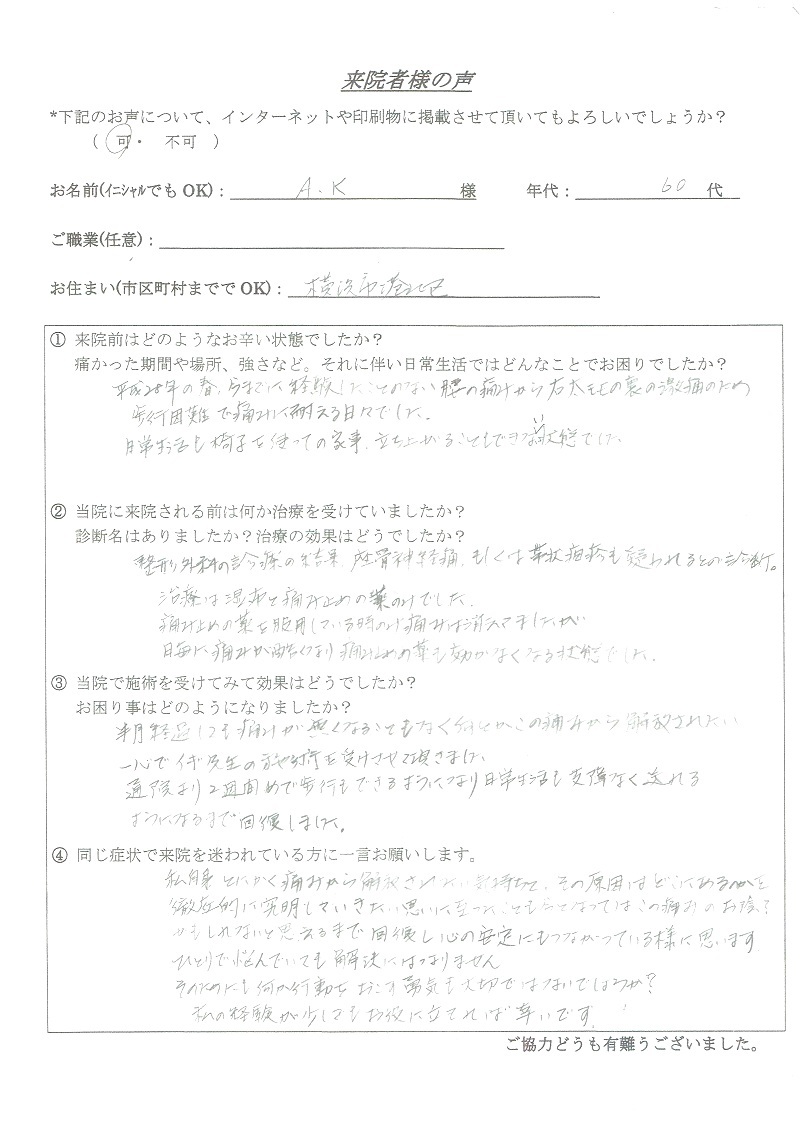 来院者様の声
*下記のお声について、インターネットや印刷物に掲載させて頂いてもよろしいでしょうか？
（ 可・ 不可 ）
お名前(ｲﾆｼｬﾙでもOK)： A.K 様 年代： 60 代
ご職業(任意)：
お住まい(市区町村まででOK)： 横浜市港北区
① 来院前はどのようなお辛い状態でしたか？
痛かった期間や場所、強さなど。それに伴い日常生活ではどんなことでお困りでしたか？
平成28年の春、今までに経験したことのない腰の痛みから右太ももの裏の激痛のため
歩行困難で痛みに耐える日々でした。
日常生活も椅子を使っての家事、立ち上がることもできない状態でした
② 当院に来院される前は何か治療を受けていましたか？
診断名はありましたか？治療の効果はどうでしたか？
整形外科の診療の結果、座骨神経痛、もしくは帯状疱疹も疑われるとの診断。
治療は湿布と痛み止めの薬のみでした。
痛み止めの薬を服用している時のみ痛みは消えてましたが
日毎に痛みが酷くなり痛み止めの薬も効かなくなる状態でした。
③ 当院で施術を受けてみて効果はどうでしたか？
お困り事はどのようになりましたか？
半月経過しても痛みが無くなることもなく何とかこの痛みから解放されたい
一心で先生の施術を受けさせて頂きました。
通院より2週間めで歩行もできるようになり日常生活も支障なく送れる
ようになるまで回復しました。
④ 同じ症状で来院を迷われている方に一言お願いします。
私自身とにかく痛みから解放されたい気持ちと、その原因はどこにあるのかを
徹底的に究明していきたい思いに至ったことも今となってはこの痛みのお陰？
かもしれないと思えるまで回復し心の安定にもつながっている様に思います
ひとりで悩んでいても解決にはつながりません
そのためにも何か行動をおこす勇気も大切ではないでしょうか？
私の経験が少しでもお役に立てれば幸いです。
ご協力どうも有難うございました。